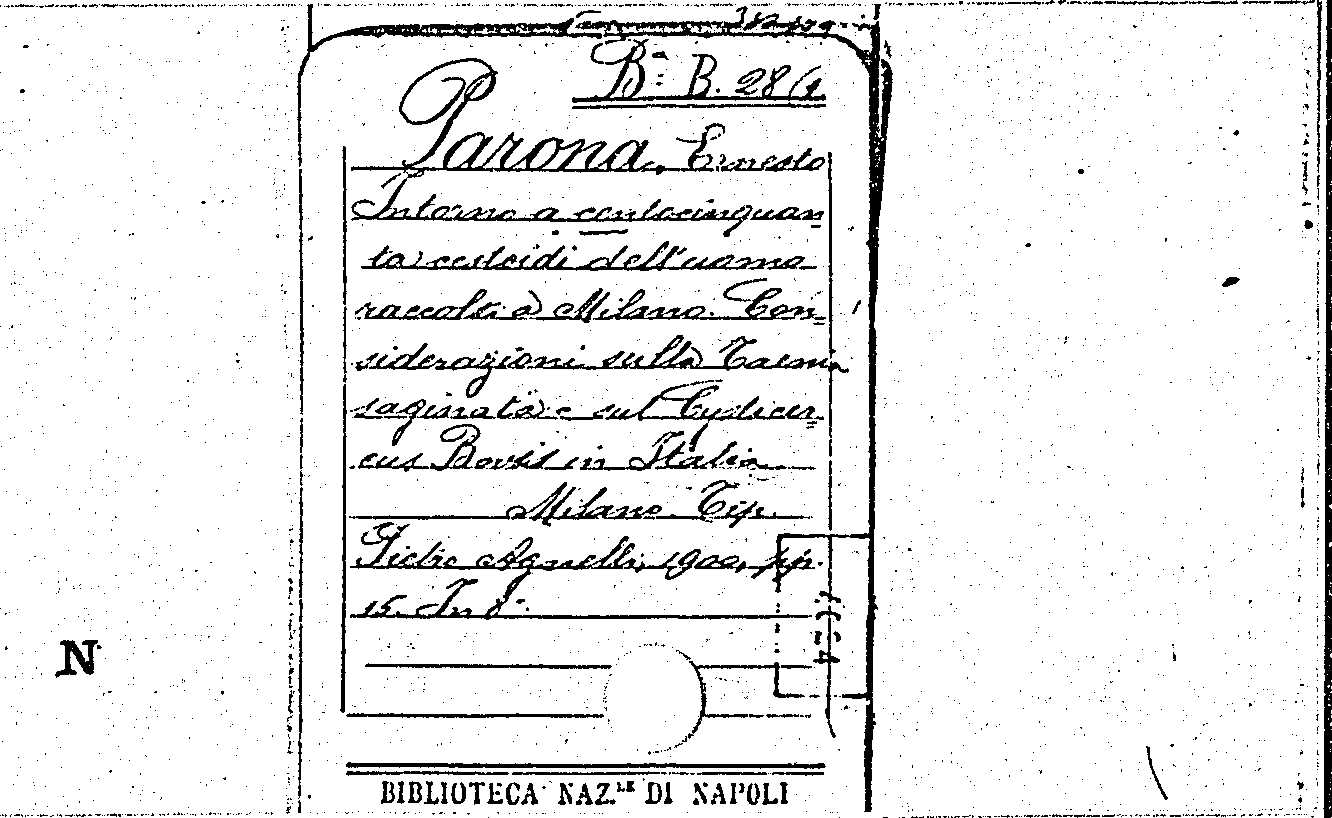 Bª: B. 28 (1
Parona, Ernesto
Intorno a centocinquan=
ta cestoidi dell'uomo
raccolti a Milano. Con=
siderazioni sulla Taenia
saginata e sul Cysticer=
cus Bovis in Italia
Milano. Tip.
Pietro Agnelli, 1900, pp.
15. In 8º.
N
BIBLIOTECA NAZ.LE DI NAPOLI